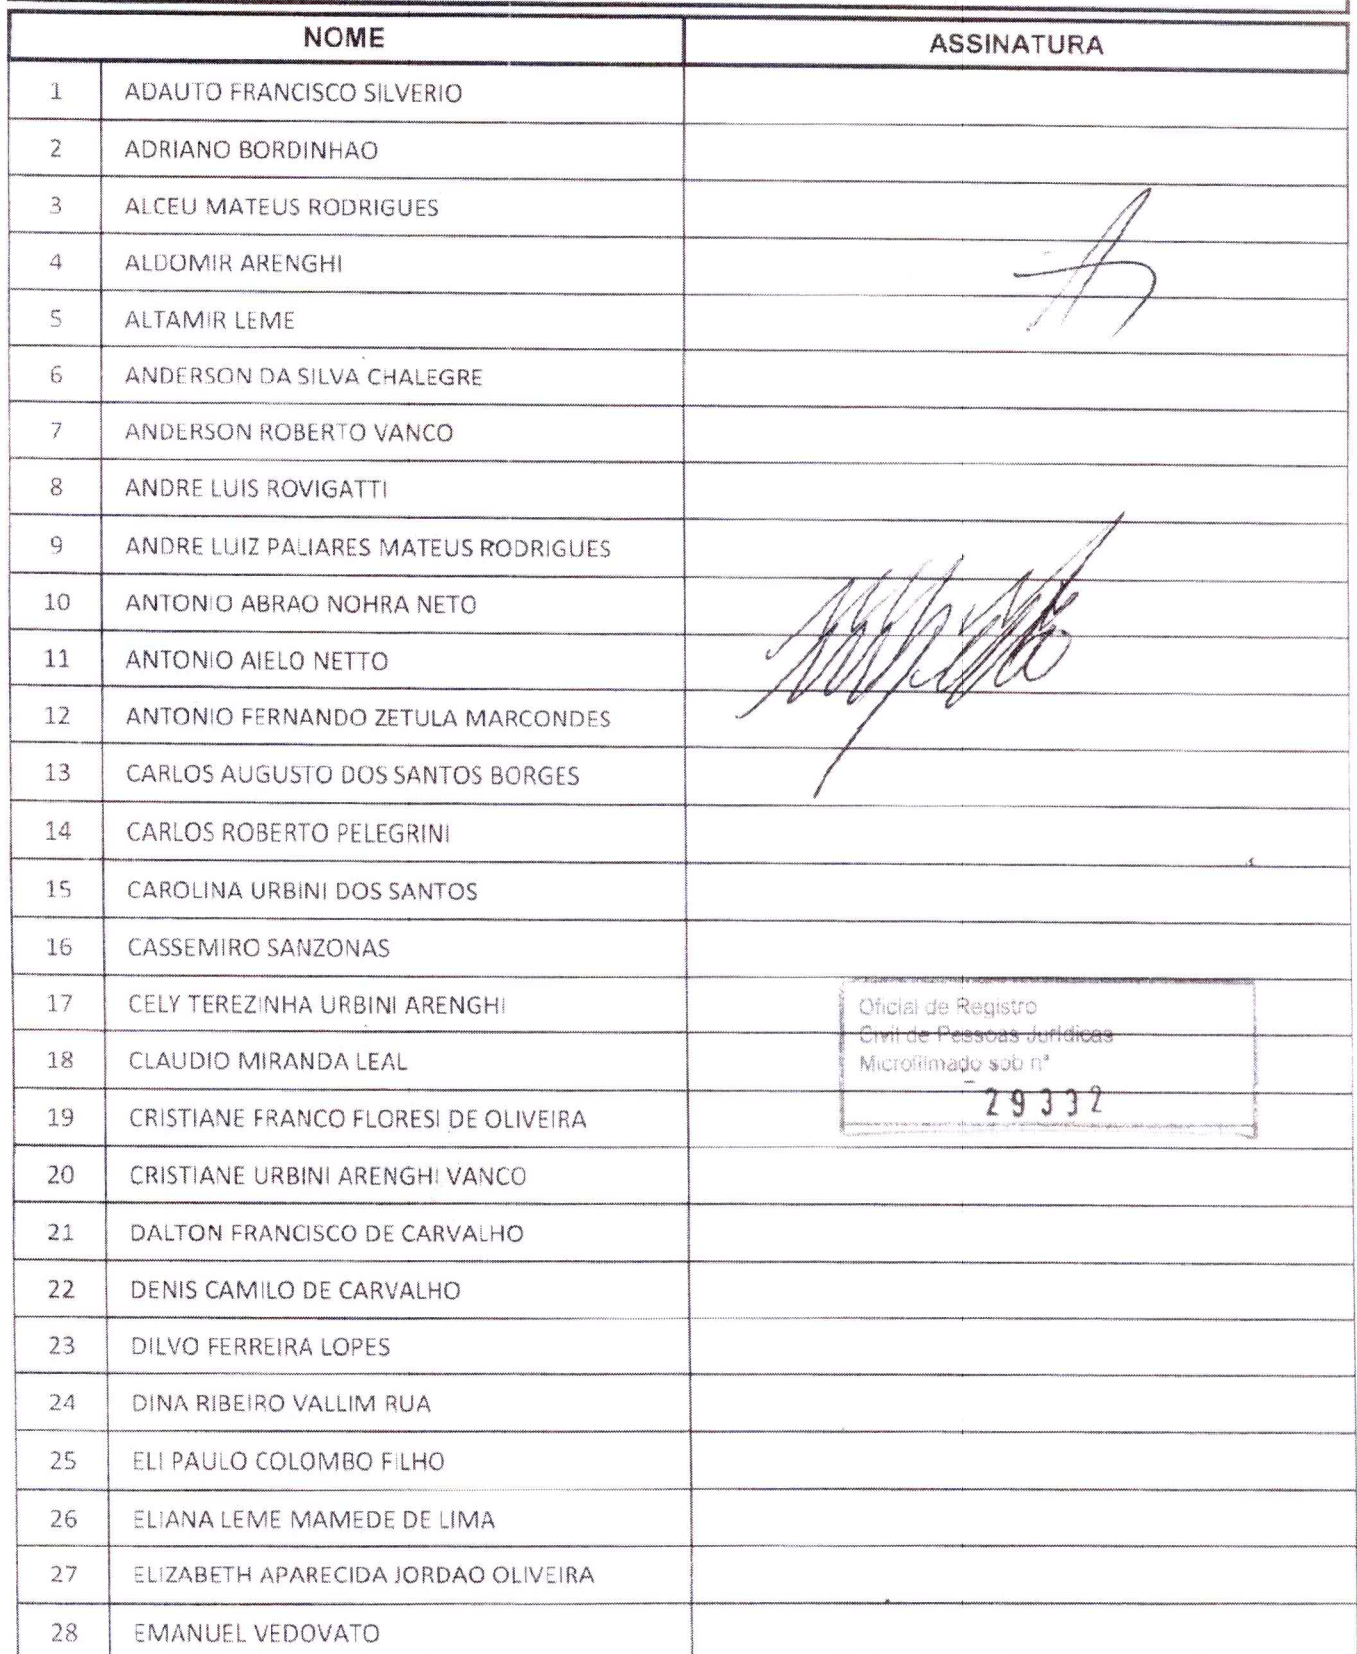 NOME ASSINATURA
1 ADAUTO FRANCISCO SILVERIO
2 ADRIANO BORDINHAO
3 ALCEU MATEUS RODRIGUES
4 ALDOMIR ARENGHI
5 ALTAMIR LEME
6 ANDERSON DA SILVA CHALEGRE
7 ANDERSON ROBERTO VANCO
8 ANDRE LUIS ROVIGATTI
9 ANDRE LUIZ PALIARES MATEUS RODRIGUES
10 ANTONIO ABRAO NOHRA NETO
11 ANTONIO AIELO NETTO
12 ANTONIO FERNANDO ZETULA MARCONDES
13 CARLOS AUGUSTO DOS SANTOS BORGES
14 CARLOS ROBERTO PELEGRINI
15 CAROLINA URBINI DOS SANTOS
16 CASSEMIRO SANZONAS
17 CELY TEREZINHA URBINI ARENGHI
Oficial de Registro
Civil de Pessoas Jurídicas
18 CLAUDIO MIRANDA LEAL
Microfilmado sob nº
29332
19 CRISTIANE FRANCO FLORESI DE OLIVEIRA
20 CRISTIANE URBINI ARENGHI VANCO
21 DALTON FRANCISCO DE CARVALHO
22 DENIS CAMILO DE CARVALHO
23 DILVO FERREIRA LOPES
24 DINA RIBEIRO VALLIM RUA
25 ELI PAULO COLOMBO FILHO
26 ELIANA LEME MAMEDE DE LIMA
27 ELIZABETH APARECIDA JORDAO OLIVEIRA
28 EMANUEL VEDOVATO